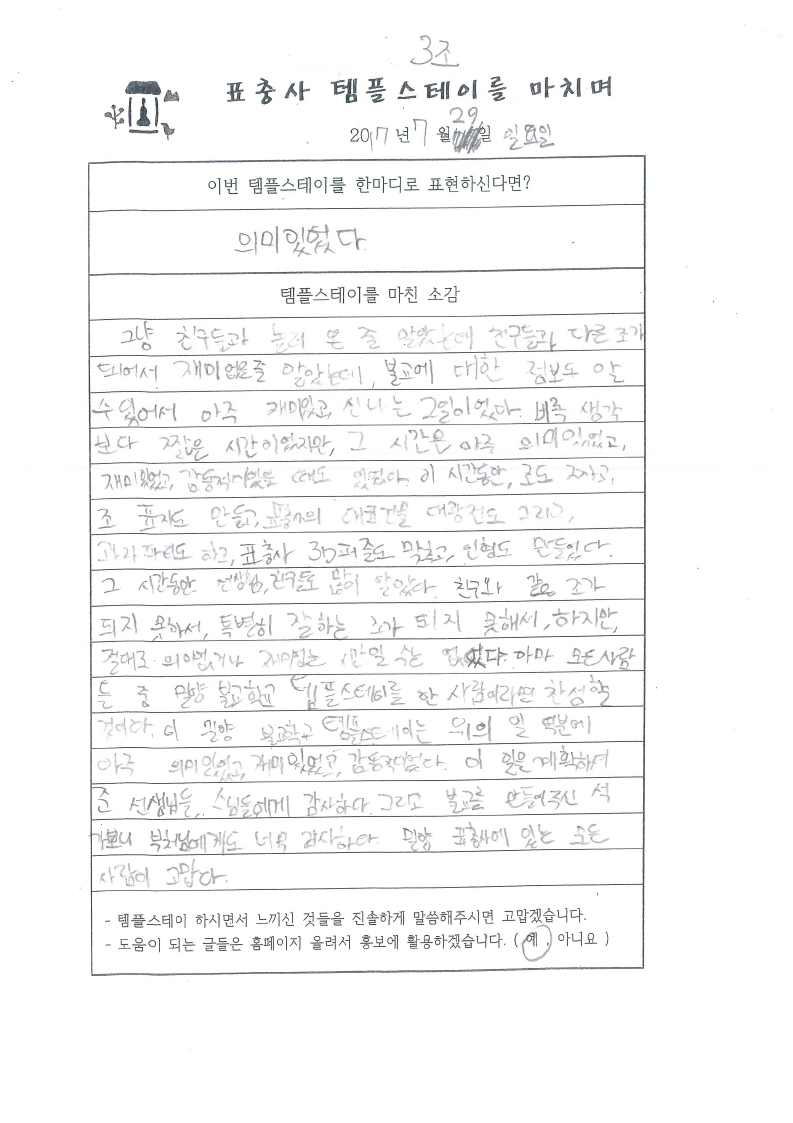 3조
표충사 템플스테이를 마치며
2017년 7월 29일 일요일
이번 템플스테이를 한마디로 표현하신다면?
의미있었다.
템플스테이를 마친 소감
그냥 친구들과 놀러 온 줄 알았는데 친구들과 다른 조가
되어서 재미없을줄 알았는데, 불교에 대한 정보도 알
수 있어서 아주 재미있고, 신나는 2일이었다. 비록 생각
보다 짧은 시간이었지만, 그 시간은 아주 의미있었고,
재미있었고, 감동적이었을 때도 있었다. 이 시간동안,
조 표지도 만들고, 표충사의 대표건물 대광전도 그리고,
과자파티도 하고, 표충사 3D퍼즐도 맞추고, 인형도 만들었다.
그 시간동안 선생님, 친구들도 많이 알았다. 친구와 같은 조가
되지 못하서, 특별히 잘하는 조가 되지 못해서, 하지만,
절대로 의미없거나 재미없는 1박2일 수는 없었다. 아마 모든사람
들 중 밀양 불교학교 템플스테이를 한 사람이라면 찬성할
것이다. 이 밀양 불교학교 템플스테이는 위의 일 덕분에
아주 의미있었고, 재미있었고, 감동적이었다. 이 일을 계획하셔
준 선생님들, 스님들에게 감사하다. 그리고 불교를 만들어주신 석
가모니 부처님에게도 너무 감사하다. 밀양 표충사에 있는 모든
사람이 고맙다.
- 템플스테이 하시면서 느끼신 것들을 진솔하게 말씀해주시면 고맙겠습니다.
- 도움이 되는 글들은 홈페이지 올려서 홍보에 활용하겠습니다. ( 예 , 아니요 )